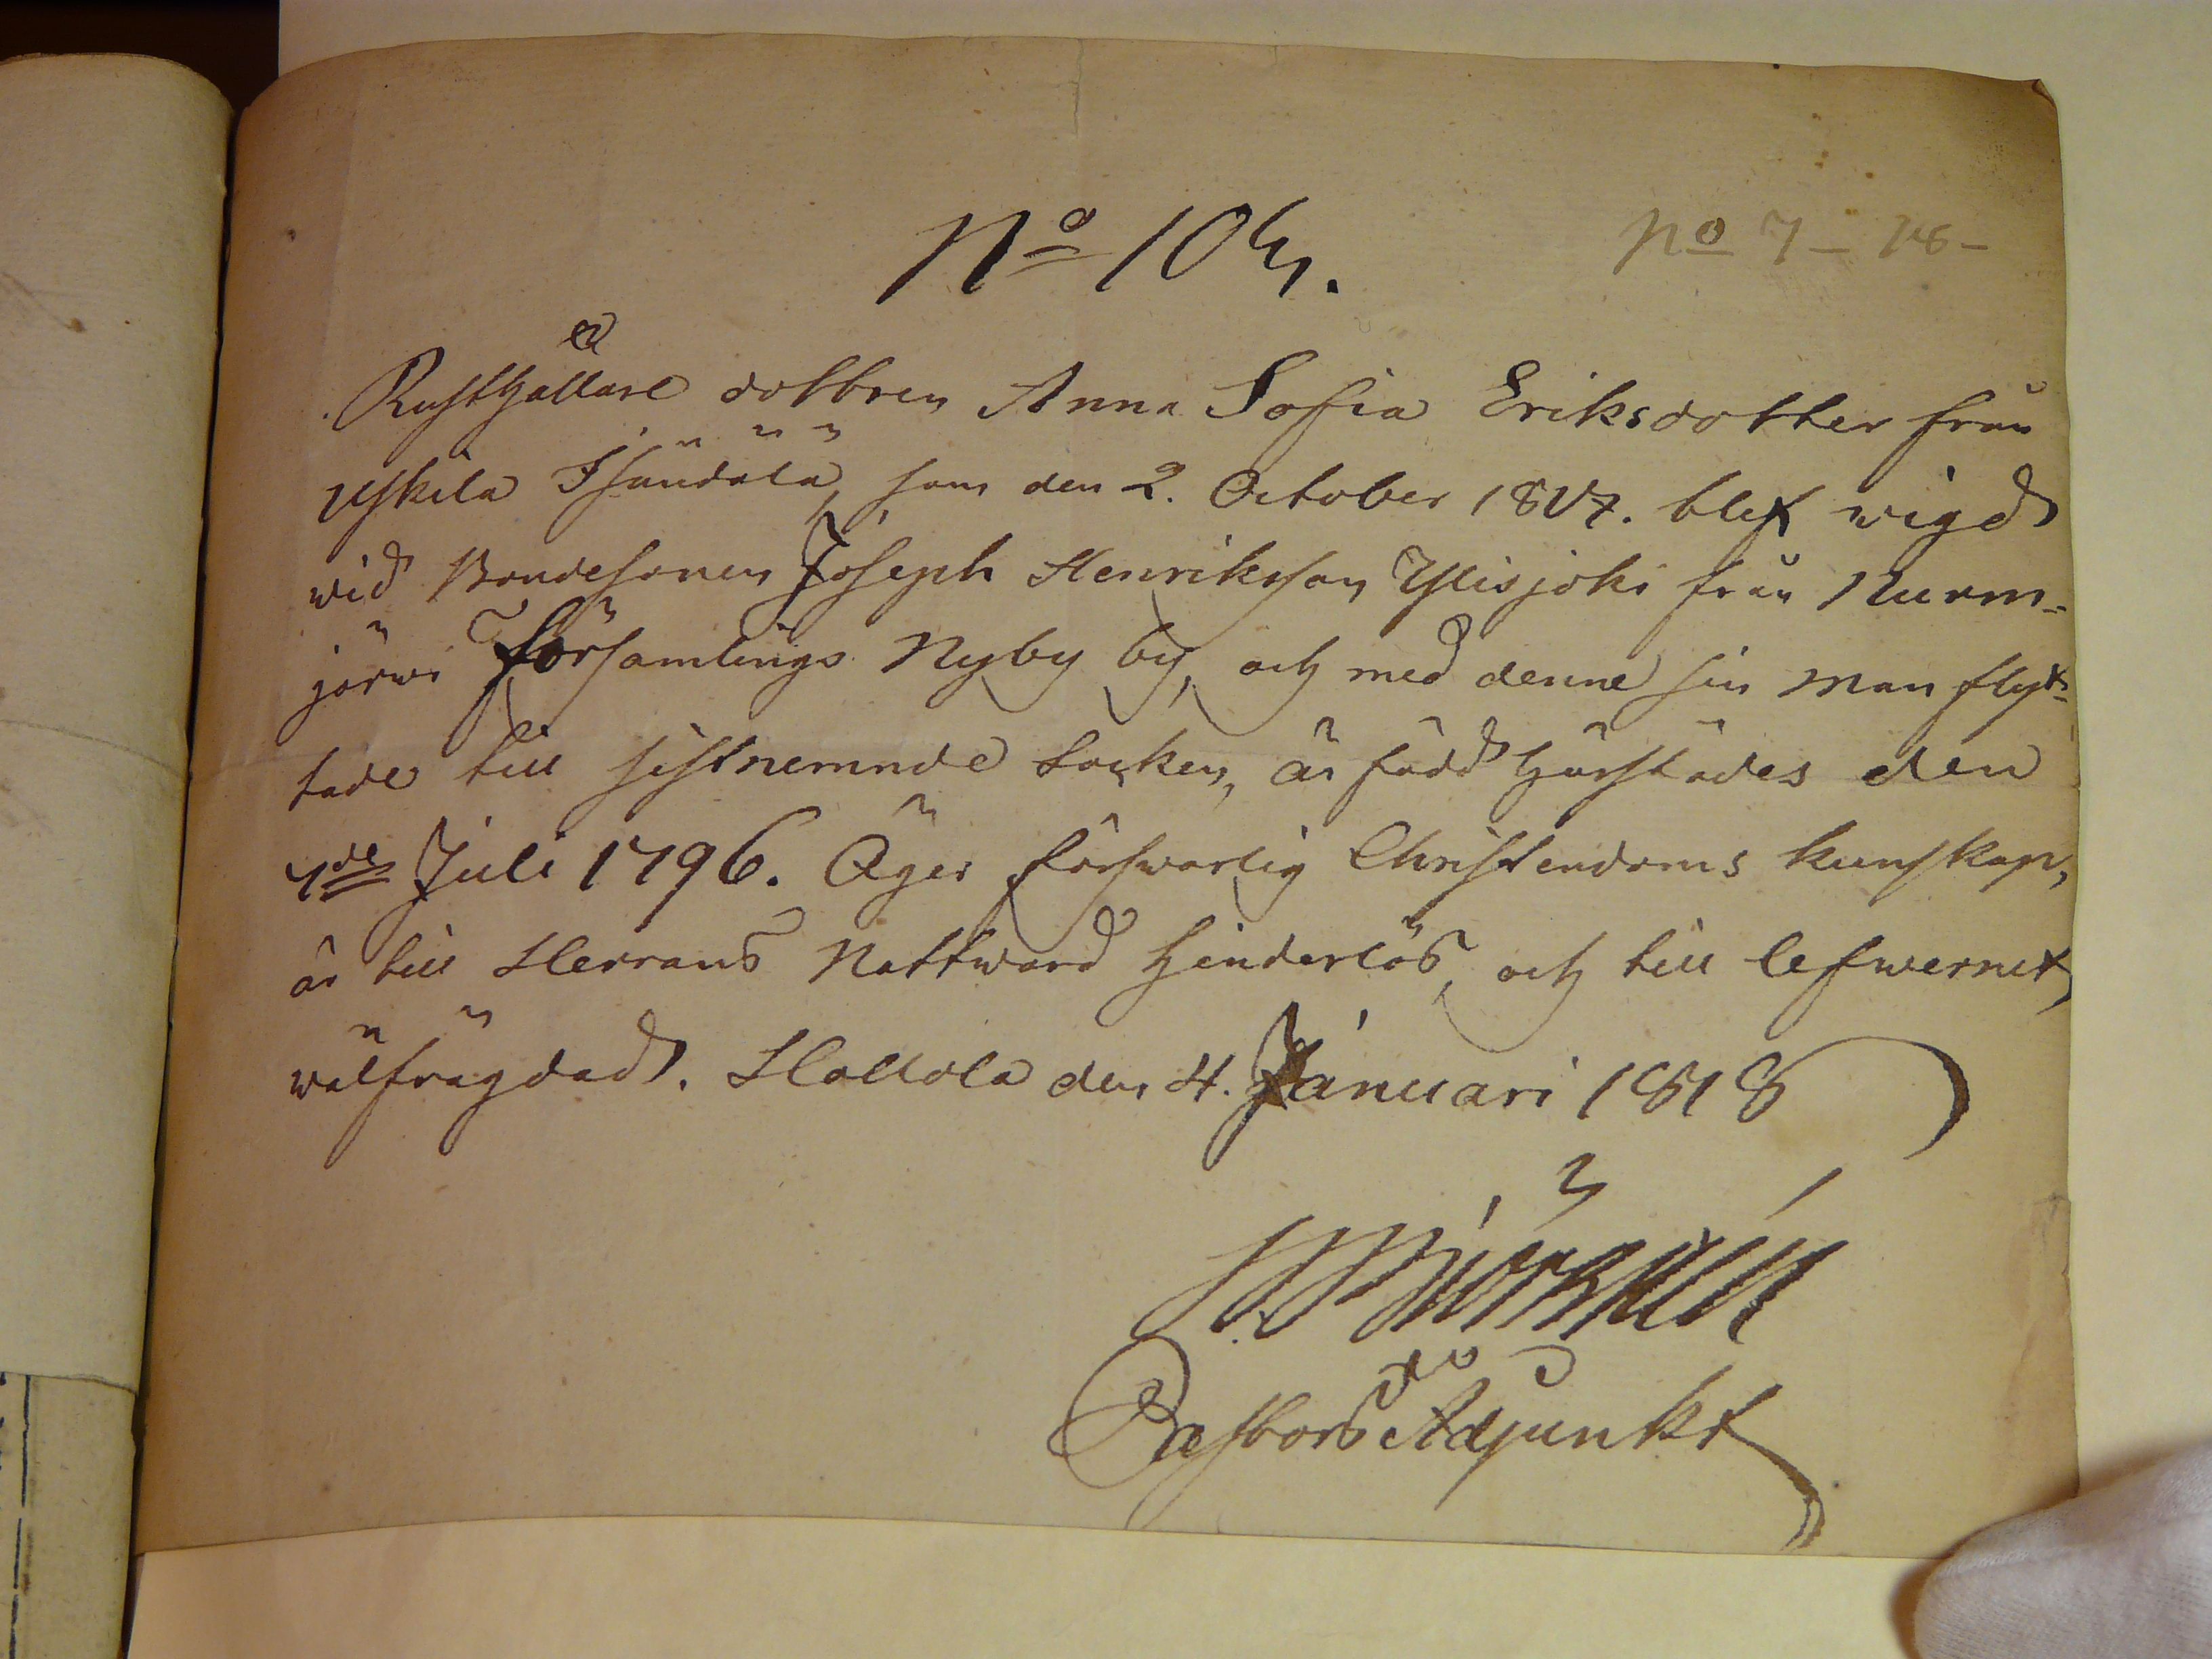 No 104.
No 7 - 18 -
Rusthållare dottren Anna Sofia Eriksdotter från
Uskila Isändälä, som den 2. October 1817. blef wigd
wid Bondesonen Joseph Henriksson Ylisjoki från Nurm-
järwi Församlings Nyby by, och med denne sin man flyt-
tade till sistnemnde Socken, är född härstädes den
7de Juli 1796. Äger förswarlig Christendoms kunskap,
är till Herrans Nattward hinderlös, och till lefwernet
wälfrägdad. Hollola den 4. Januari 1818
Pastors Adjunkt